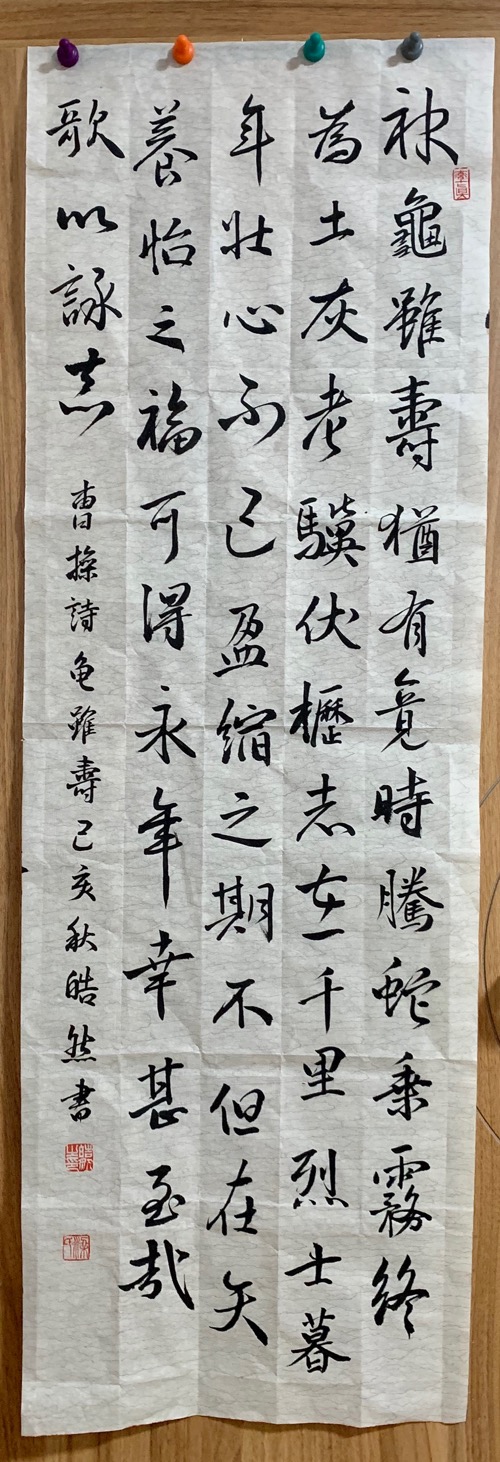 神龜雖壽猶有竟時騰蛇乘霧終
為土灰老驥伏櫪志在千里烈士暮
年壯心不已盈縮之期不但在天
養怡之福可得永年幸甚至哉
歌以詠志
曹操詩龟雖壽己亥秋皓然書